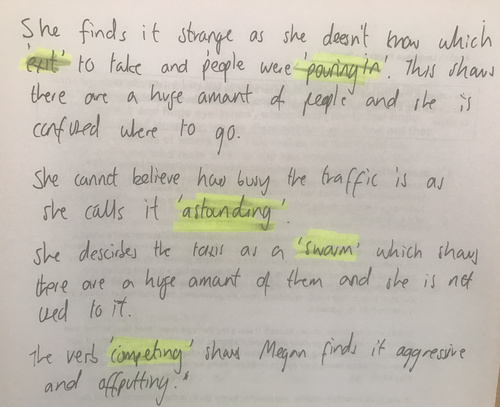 She finds it strange as she doesn't know which
'exit' to take and people were 'pouring in'. This shows
there are a huge amount of people and she is
confused where to go.
She cannot believe how busy the traffic is as
she calls it 'astounding'.
She describes the taxis as a 'swarm' which shows
there are a huge amount of them and she is not
used to it.
The verb 'competing' shows Megan finds it aggressive
and offputting."